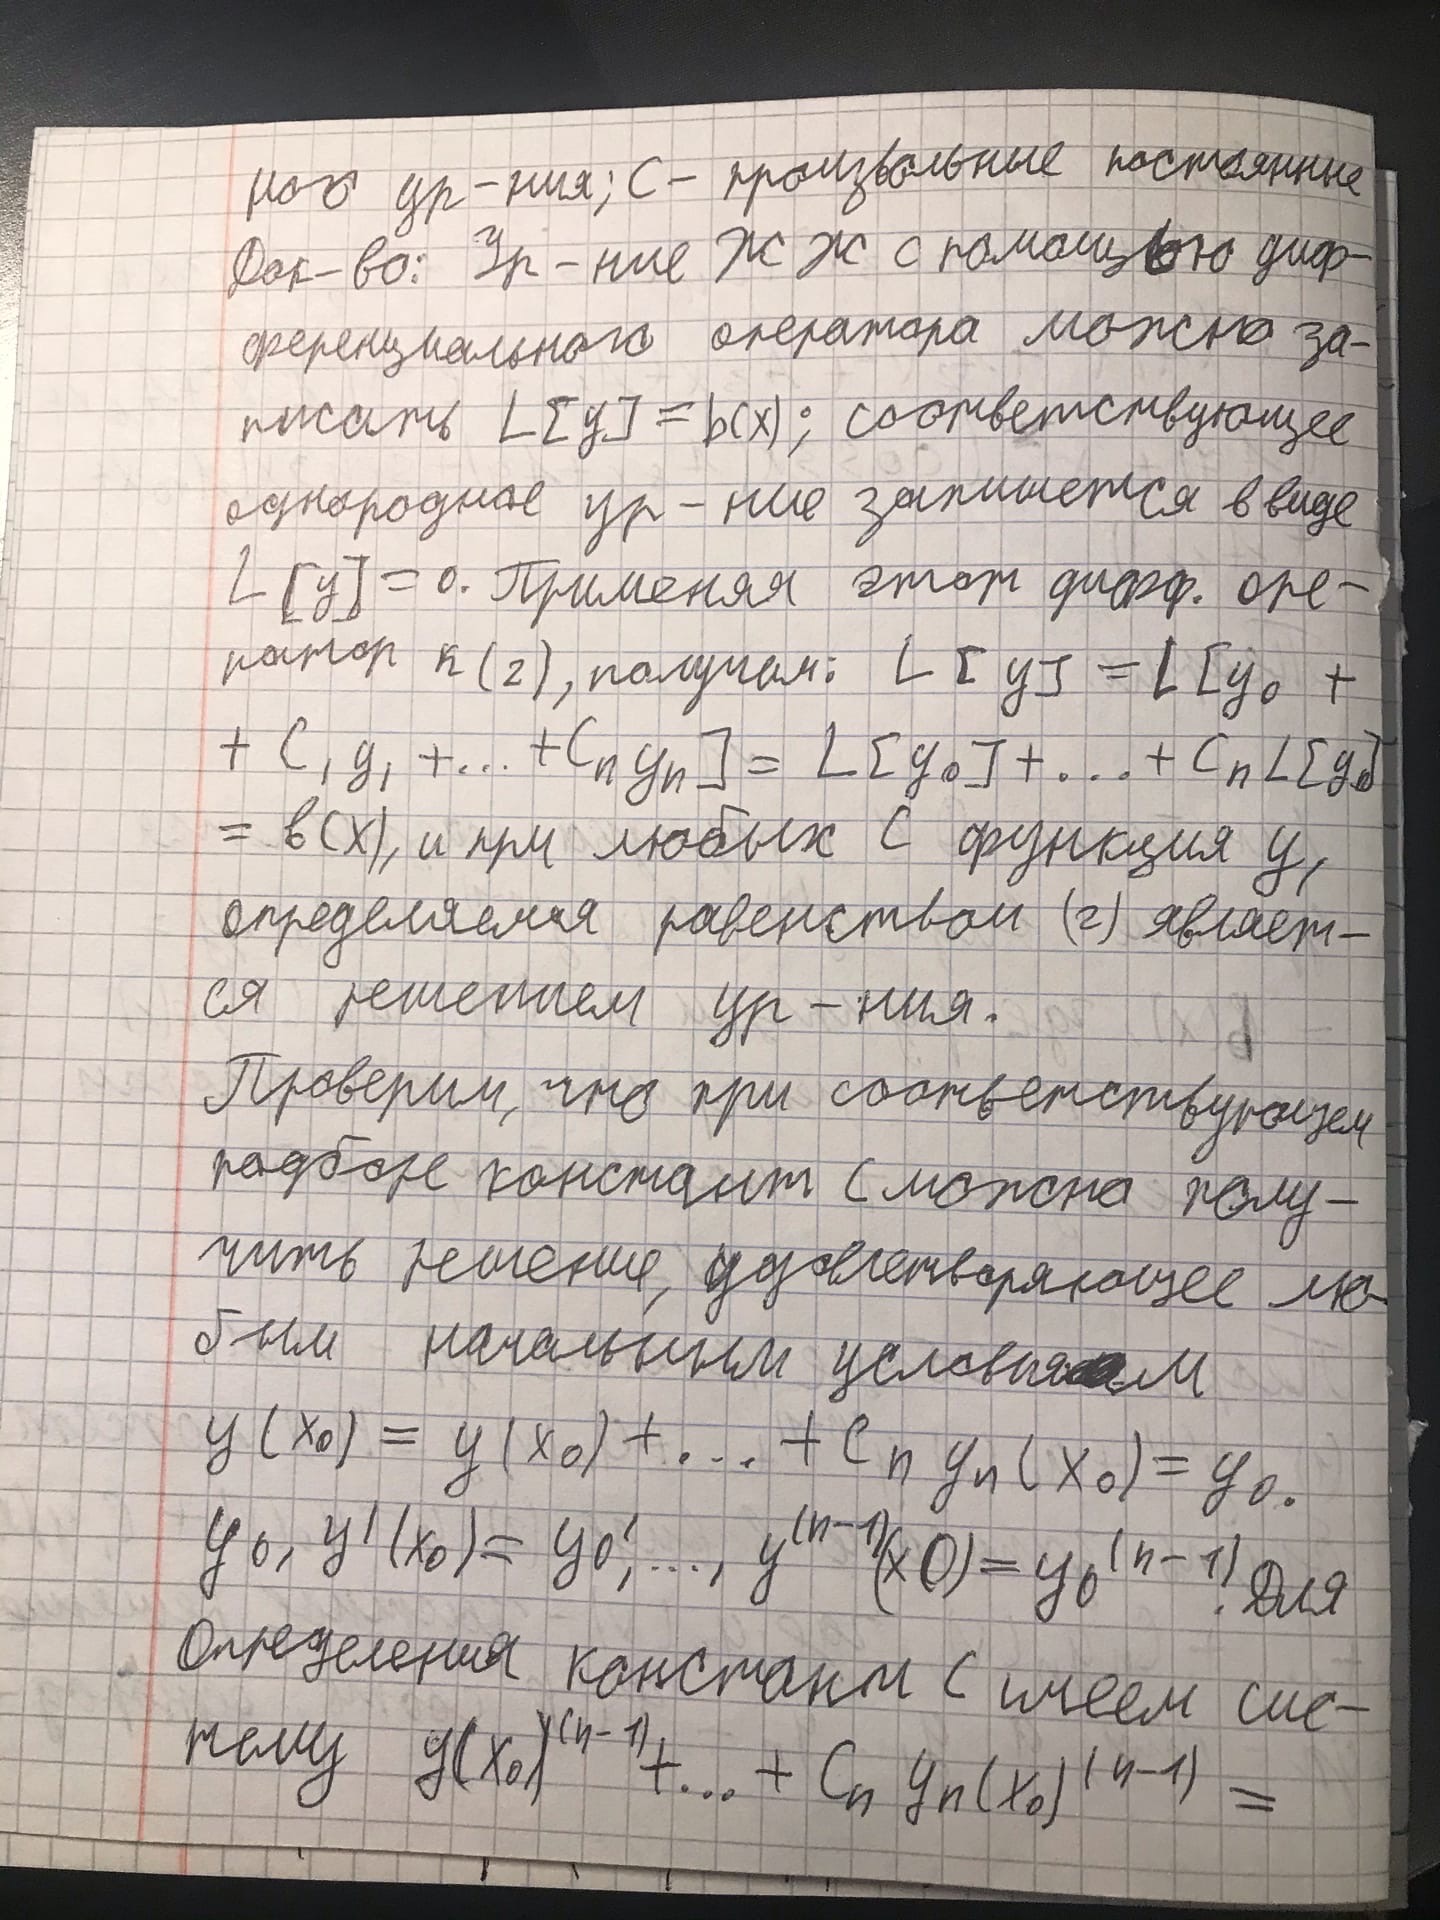 ного ур-ния; С - произвольные постоянные
Док-во: Ур-ние ЖЖ с помощью диф-
ференциального оператора можно за-
писать L[y] = b(x); соответствующее
однородное ур-ние запишется в виде
L[y] = 0. Применяя этот дифф. опе-
ратор к (2), получим: L[y] = L[y₀ +
+ C₁y₁ + ... + Cₙyₙ] = L[y₀] + ... + CₙL[yₙ]
= b(x), и при любых С функция y,
определяемая равенством (2) являет-
ся решением ур-ния.
Проверим, что при соответствующем
подборе констант С можно полу-
чить решение, удовлетворяющее лю-
бым начальным условиям
y(x₀) = y(x₀) + ... + Cₙyₙ(x₀) = y₀.
y₀, y'(x₀) = y₀', ..., y⁽ⁿ⁻¹⁾(x0) = y₀⁽ⁿ⁻¹⁾. Для
Определения констант С имеем сис-
тему y(x₀)⁽ⁿ⁻¹⁾ + ... + Cₙyₙ(x₀)⁽ⁿ⁻¹⁾ =